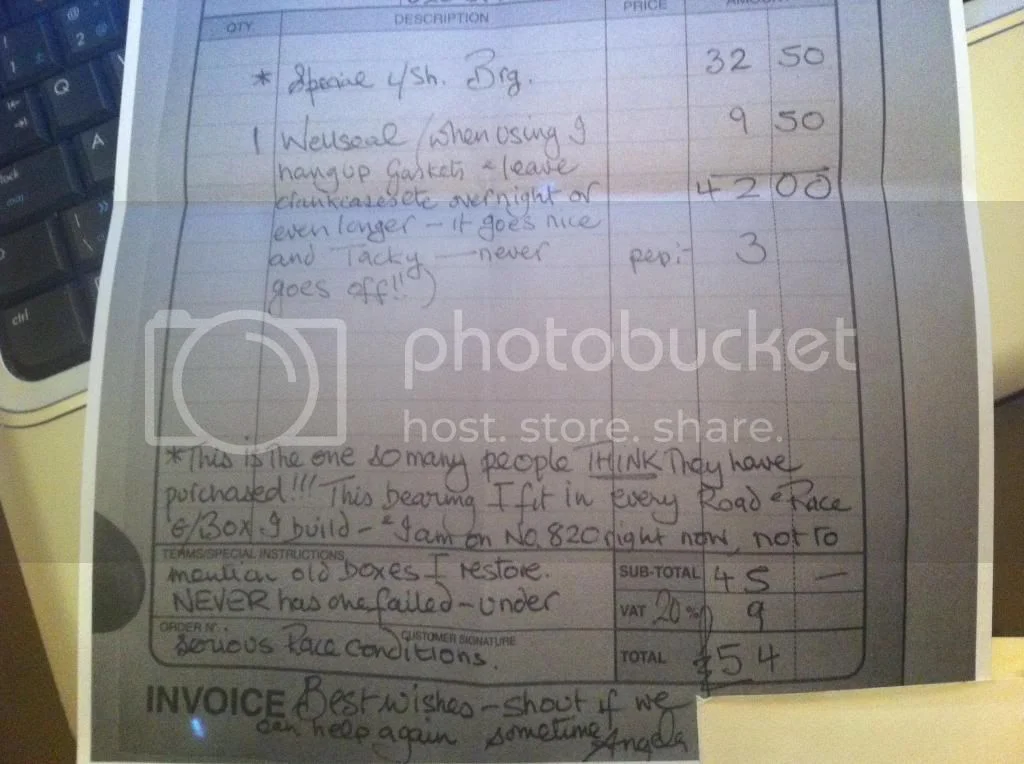 QTY. DESCRIPTION PRICE AMOUNT
* Special c/sh. Brg. 32 50
1 Wellseal (when using I 9 50
hang up Gaskets & leave
crankcases etc overnight or 42 00
even longer - it goes nice
and Tacky — never pep:- 3
goes off!!)
photobucket
host. store. share.
*This is the one so many people THINK They have
purchased!!! This bearing I fit in every Road & Race
G/Box I build - & I am on No. 820 right now, not to
TERMS/SPECIAL INSTRUCTIONS
mention old boxes I restore. SUB-TOTAL 45 —
NEVER has one failed - under VAT 20% 9
ORDER Nº. CUSTOMER SIGNATURE
serious Race conditions. TOTAL £54
INVOICE Best wishes - shout if we
can help again sometime Angela
Q
A
2
ctrl